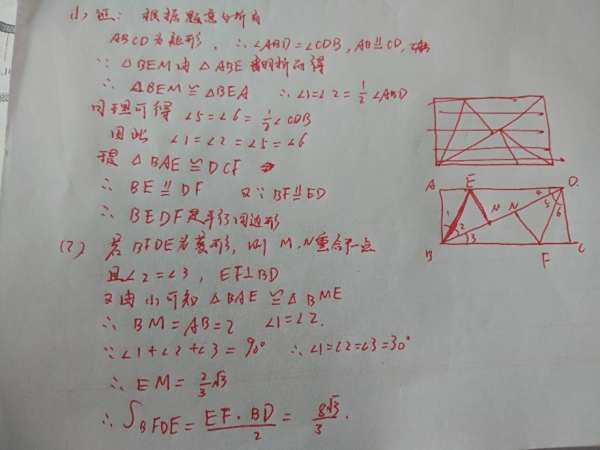 (1) 证: 根据题意分析有
ABCD为矩形, ∴ ∠ABD=∠CDB, AB∥CD,
∵ △BEM由△ABE翻折而得
∴ △BEM≌△BEA ∴∠1=∠2=½∠ABD
同理可得 ∠5=∠6=½∠CDB
因此 ∠1=∠2=∠5=∠6
△BAE≌DCF
∴ BE∥DF 又∵ BF∥ED
∴ BEDF是平行四边形
(2) 若BFDE为菱形, 则 M、N重合于一点
且∠2=∠3, EF⊥BD
又由(1)可知 △BAE≌△BME
∴ BM=AB=2 ∠1=∠2.
∵∠1+∠2+∠3=90° ∴∠1=∠2=∠3=30°
∴ EM=2/3√3
∴ S BFDE = EF·BD/2 = 8√3/3.
A E D
1 2 3 M N 4 5 6
B F C